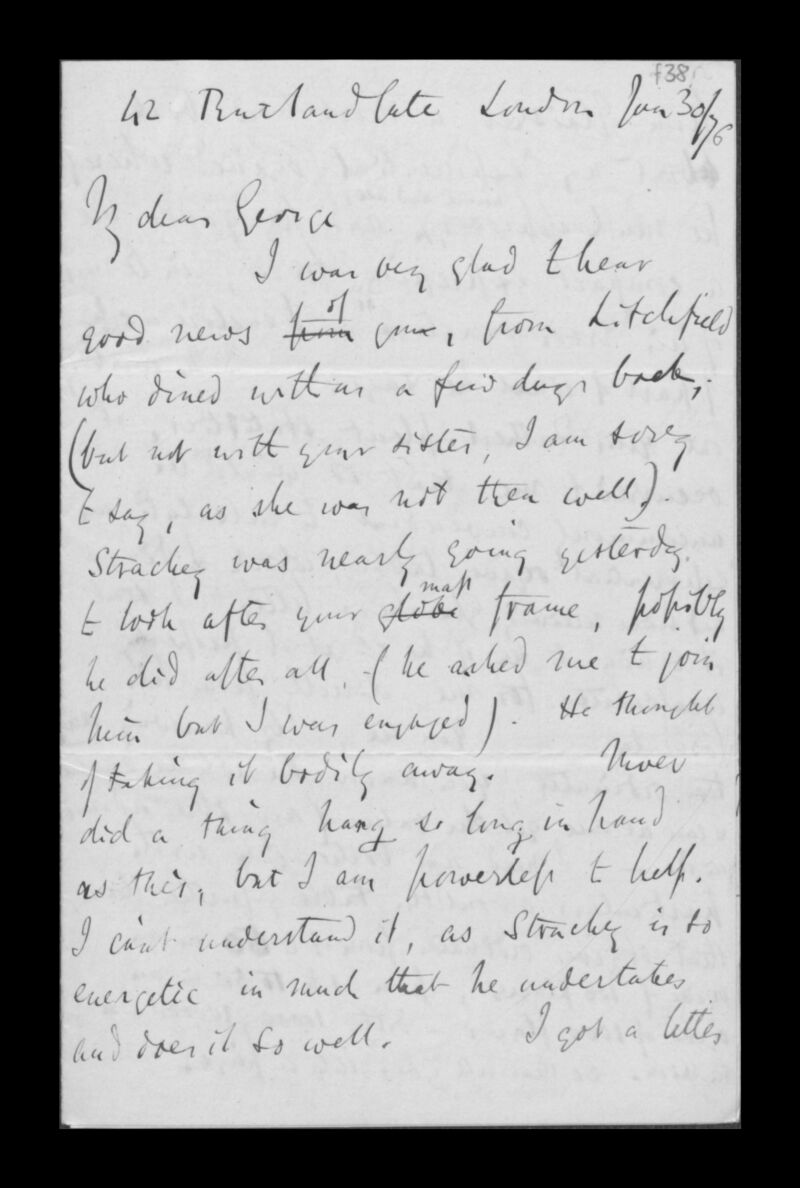 f38
42 Rutland Gate London Jan 30/76
My dear George
I was very glad to hear
of
good news from you, from Litchfield
who dined with us a few days back,
(but not with your sister, I am sorry
to say, as she was not then well).
Strachey was nearly going yesterday
map
to look after your globe frame, possibly
he did after all. (he asked me to join
him but I was engaged). He thought
of taking it bodily away. Never
did a thing hang so long in hand
as this, but I am powerless to help.
I can't understand it, as Strachey is so
energetic in much that he undertakes
and does it so well. I got a letter